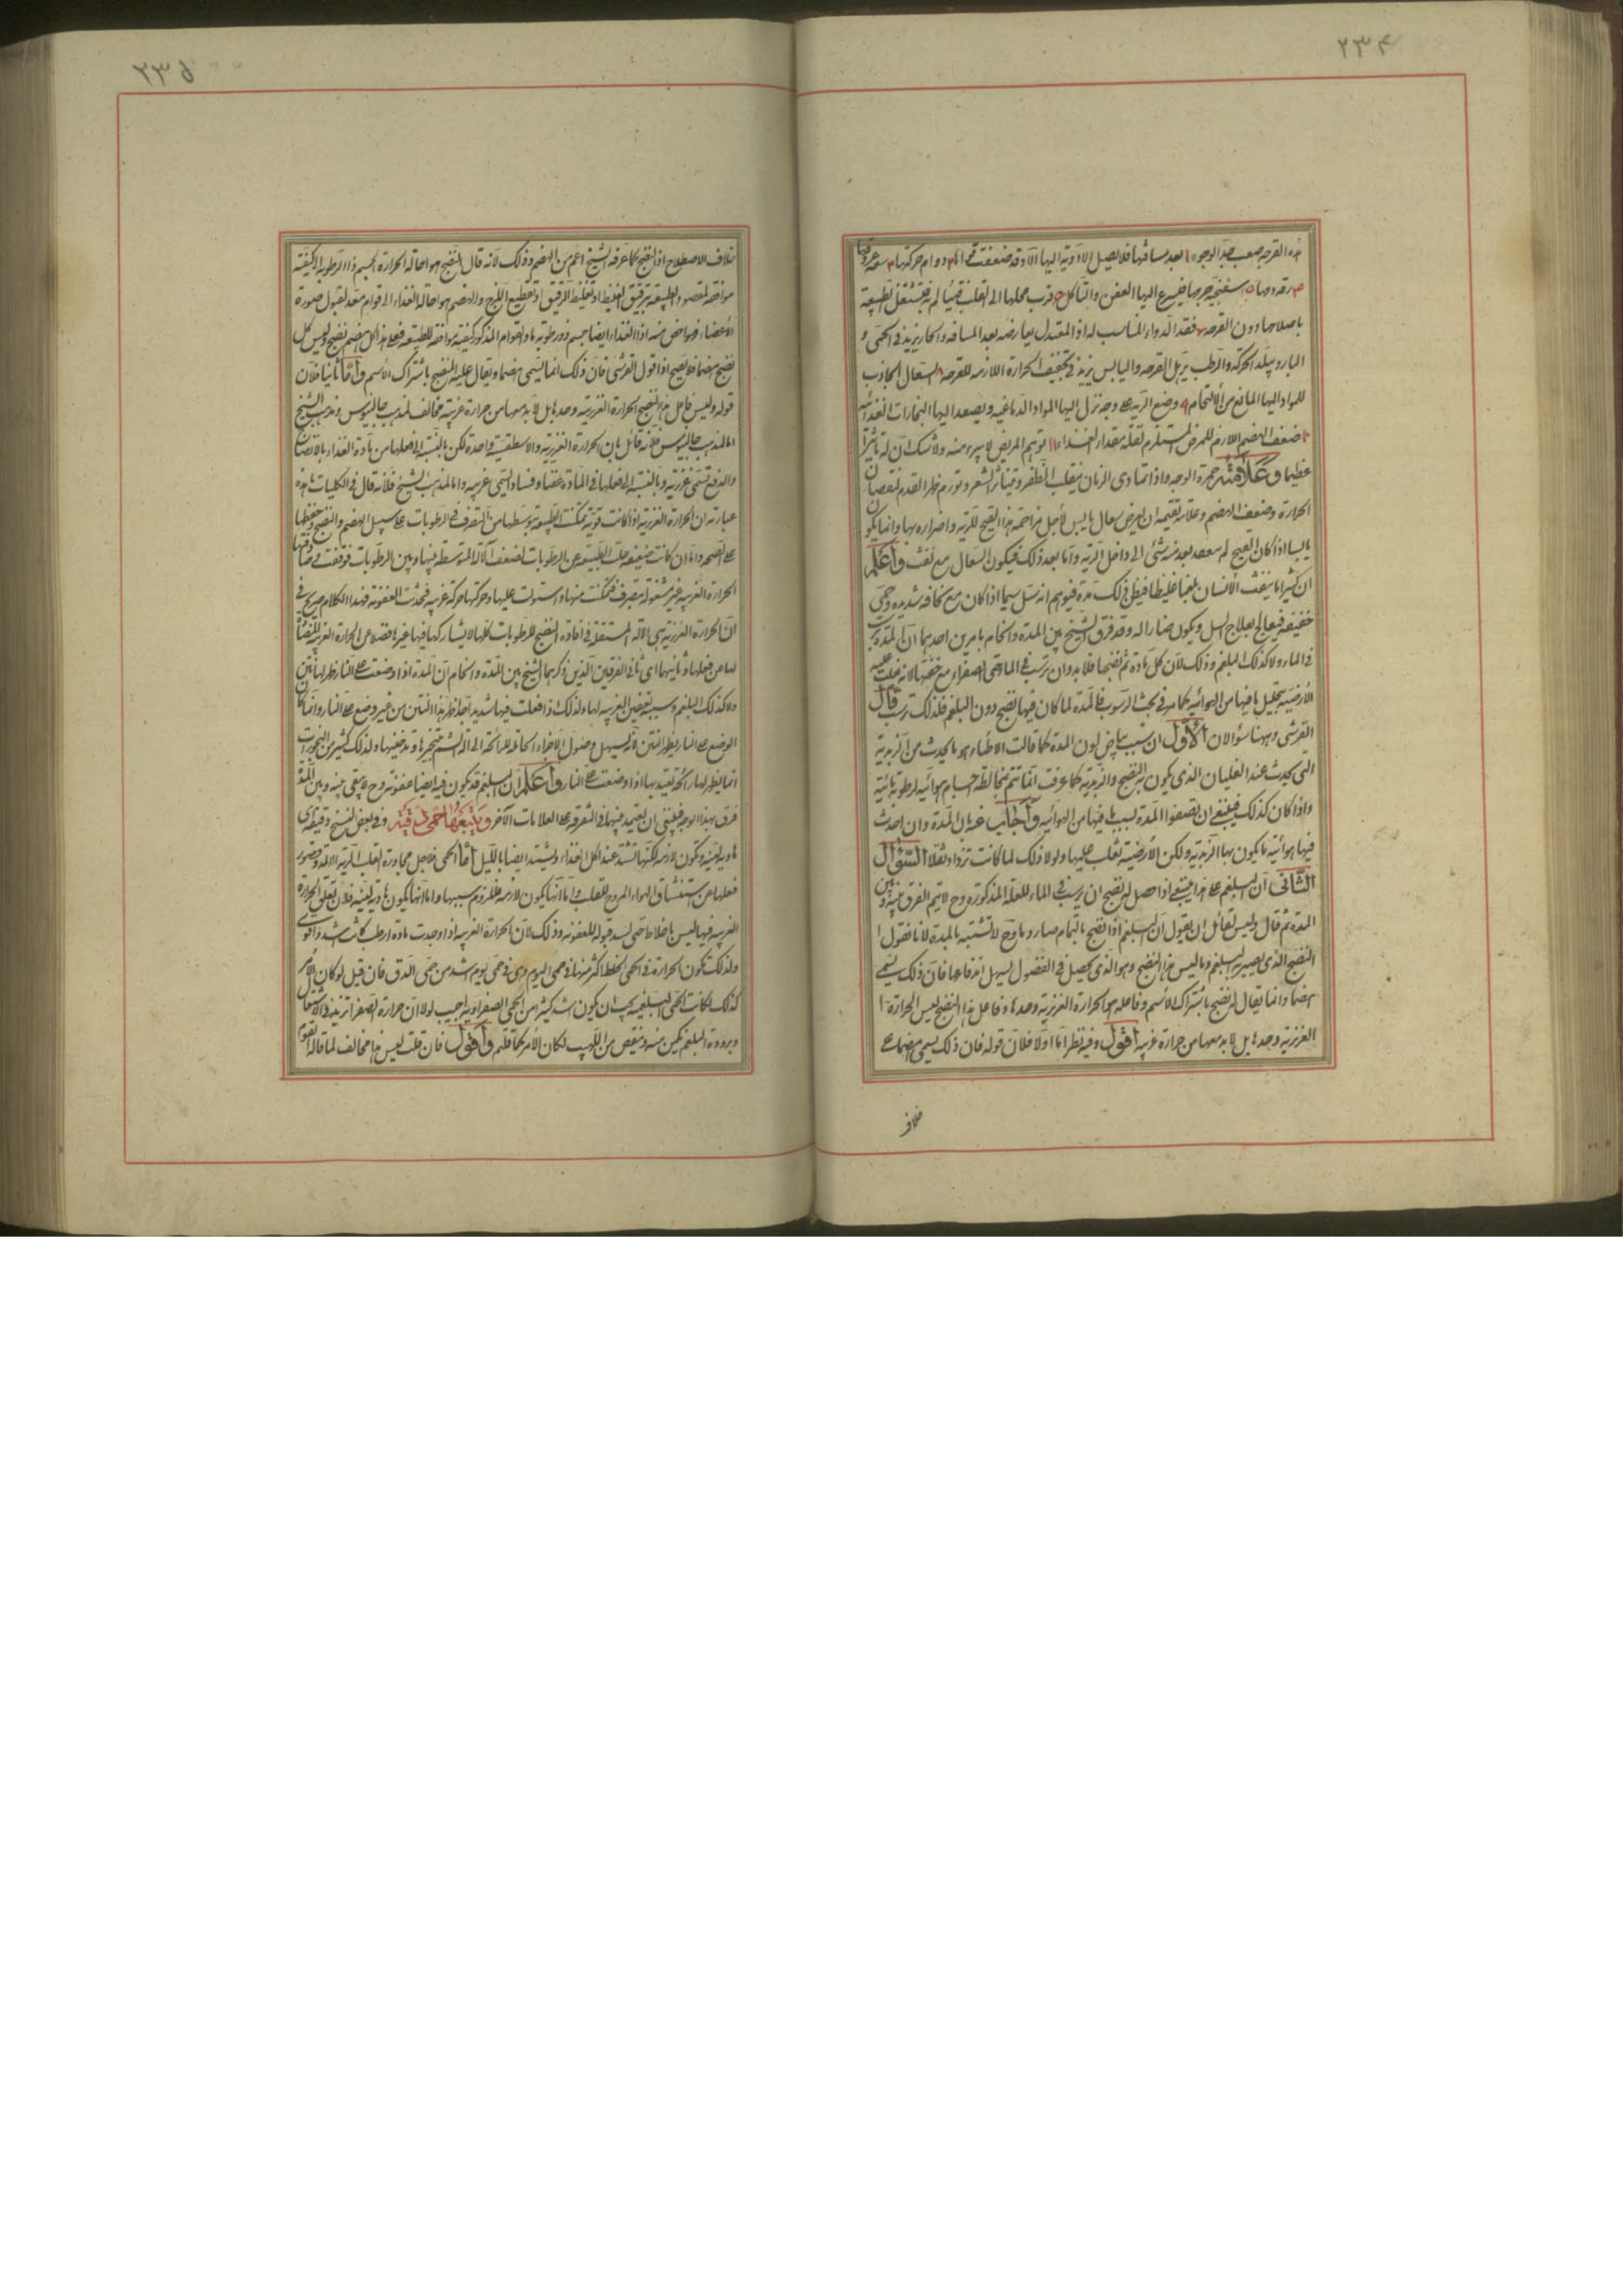 ٢٣٤
هذه القرحه صعب جدا لوجوه ١ بعد مسافتها فلا يصل الادوية اليها الا وقد ضعفت قواها ٢ دوام حركتها ٣ سعة عروقها
باصلاحها دون القرحه ٧ فقد الدواء المناسب له اذ المعتدل يعارضه بعد المسافه والحار يزيد في الحمى و
البارد يبلد الحركه والرطب يرهل القرحه واليابس يزيد في تجفيف الحرارة اللازمه للقرحه ٨ السعال الجاذب
للمواد اليها المانع من الالتحام ٩ وضع الريه على وجه تنزل اليها المواد الدماغيه ويصعد اليها البخارات الغذائيه
١٠ ضعف الهضم اللازم للمرض المستلزم لقلة مقدار الغذاء ١١ توهم المريض لا يبرء منه ولا شك ان له تاثيرا
عظيما وعلامته حمرة الوجه واذا تمادى الزمان ينقلب الظفر ويتناثر الشعر وتورم ظهر القدم لنقصان
الحرارة وضعف الهضم وعلامة تقيحه ان يعرض سعال يابس لاجل مزاحمة هذا القيح للريه واضراره بها وانما يكون
يابسا اذا كان القيح لم يصعد بعد منه شئ الى داخل الرية واما بعد ذلك فيكون السعال مع نفث واعلم
ان كثيرا ما ينفث الانسان بلغما غليظا فيظن في تلك مدة فيوهم انه سل سيما اذا كان مع نحافه شديده وحمى
خفيفه فيعالج بعلاج السل ويكون ضارا له وقد فرق الشيخ بين المدة والخام بامرين احدهما ان المدة ترسب
في الماء ولا كذلك البلغم وذلك لان كل مادة تم نضجها فلا بد وان يرسب في الماء حتى الصفراء مع خفتها لانه غلب عليه
الأرضية بتحليل ما فيها من الهوائيه كما مر في بحث الرسوب فالمدة لما كان فيها نضج دون البلغم فلذلك ترسب قال
القرشي وههنا سؤالان الأول ان سبب بياض لون المدة كما قالت الاطباء هو ما يحدث من الزبدية
التي يحدث عند الغليان الذي يكون للنضج والزبدية كما عرفت انما تتم بمخالطه اجسام هوائيه لرطوبة مائية
واذا كان كذلك فينبغي ان تطفوا المدة بسبب ما فيها من الهوائيه واجاب عنه بان المدة وان احدث
فيها هوائية ما يكون بها الزبدية ولكن الأرضية تغلب عليها ولولا ذلك لما كانت تزداد ثقلا السؤال
الثاني ان البلغم على هذا ينبغي اذا حصل له نضج ان يرسب في الماء للعلة المذكورة وح لا يتم الفرق بينه وبين
المدة ثم قال وليس لقائل ان يقول ان البلغم اذا نضج بالتمام صار دما وح لا تشتبه بالمدة لانا نقول
النضج الذي يصير به البلغم دما ليس هذا النضج وهو الذي يحصل في الفضول ليسهل اندفاعها فان ذلك يسمى
هضما وانما يقال له نضج باشتراك الأسم وفاعله هو الحرارة الغزيزية وحدها وفاعل هذا النضج ليس الحرارة
الغزيزية وحدها بل لا بد معها من حرارة غريبه اقول وفيه نظر اما اولا فلان قوله فان ذلك يسمى هضما على
خلاف
٢٣٥
خلاف الاصطلاح اذ النضج كما عرفه الشيخ اعم من الهضم وذلك لانه قال النضج هو احالة الحرارة الجسم ذا الرطوبه الى كيفية
موافقة لمقصود الطبيعة بترقيق الغليظ او تغليظ الرقيق او تقطيع اللزج والهضم هو احالة الغذاء الى قوام معد لقبول صورة
الأعضاء فهو اخص منه اذ الغذاء ايضا جسم ذو رطوبة ما والقوام المذكور كيفية موافقه للطبيعه فعلى هذا كل هضم نضج وليس كل
نضج هضما فلا يصح اذا قول القرشي فان ذلك انما يسمى هضما ويقال عليه النضج باشتراك الأسم واما ثانيا فلان
قوله وليس فاعل هذا النضج الحرارة الغزيزية وحدها بل لا بد معها من حرارة غريبة مخالف لمذهب جالينوس ومذهب الشيخ
اما لمذهب جالينوس فلانه قائل بان الحرارة الغزيزية والاسطقسية واحدة لكن بالنسبة الى فعلها من مادة الغذاء بالانضاج
والدفع تسمى غزيزية وبالنسبة الى فعلها في المادة عفنا وفسادا تسمى غريبه واما لمذهب الشيخ فلانه قال في الكليات ما هذه
عبارته ان الحرارة الغزيزية اذا كانت قوية تمكنت الطبيعة بتوسطها من التصرف في الرطوبات على سبيل الهضم والنضج وحفظها
على الصحه واما ان كانت ضعيفه خلت الطبيعه عن الرطوبات لضعف الآلة المتوسطة بينها وبين الرطوبات فوقفت وصادفتها
الحرارة الغريبه غير مشغوله بتصرف فتمكنت منها واستولت عليها وحركتها حركة غريبه فحدثت العفونة فهذا الكلام صريح في
ان الحرارة الغزيزية هي الآلة المستقلة في افادة النضج للرطوبات كلها لا يشاركها فيها غيرها فضلا عن الحرارة الغريبه
لها عن فعلها وثانيهما اي ثاني الفرقين الذين ذكرهما الشيخ بين المدة والخام ان المدة اذا وضعت على النار ظهر لها نتن
ولا كذلك البلغم وسببه تعفين الغريبه لها ولذلك اذا فعلت فيها شديدا جدا ظهر هذا النتن من غير وضع على النار وانما كان
الوضع على النار يظهر النتن لانه يسهل وصول الاجزاء الحاملة للرائحة الى آلة الشم بتبخيرها وتدخينها ولذلك كثير من البخورات
انما يظهر لها رائحة يعتد بها اذا وضعت على النار واعلم ان البلغم قد يكون فيه ايضا عفونة وح لا يبقى بينه وبين المدة
فرق بهذا الوجه فينبغي ان يعتمد فيهما في التفرقه على العلامات الآخر ويتبعها حمى دقية وفي بعض النسخ دقيقه اي
هادية لينه وتكون لازمه لكنها تشتد عند اكل الغذاء وتشتد ايضا بالليل اما الحمى فلاجل مجاورة القلب الريه الالمه وقصور
فعلها عن استنشاق الهواء المروح للقلب واما انها يكون لازمه فللزوم سببها واما انها يكون هادية لينه فلان تعلق الحرارة
الغريبه فيها ليس باخلاط حتى يشتد قبوله للعفونه وذلك لان الحرارة الغريبه اذا وجدت مادة ارطب كانت اشد واقوى
ولذلك تكون الحرارة في الحمى الخلطية اكثر منها في حمى اليوم وهي في حمى يوم اشد من حمى الدق فان قيل لو كان الامر
كذلك لكانت الحمى البلغميه يجب ان يكون اشد كثيرا من الحمى الصفراويه اجيب لولا ان حرارة الصفرا تزيد في الاشتعال
وبرودة البلغم يكسر منه وينقص من اللهيب لكان الأمر كما قلتم واقول فان قلت ليس هذا مخالف لما قاله القوم